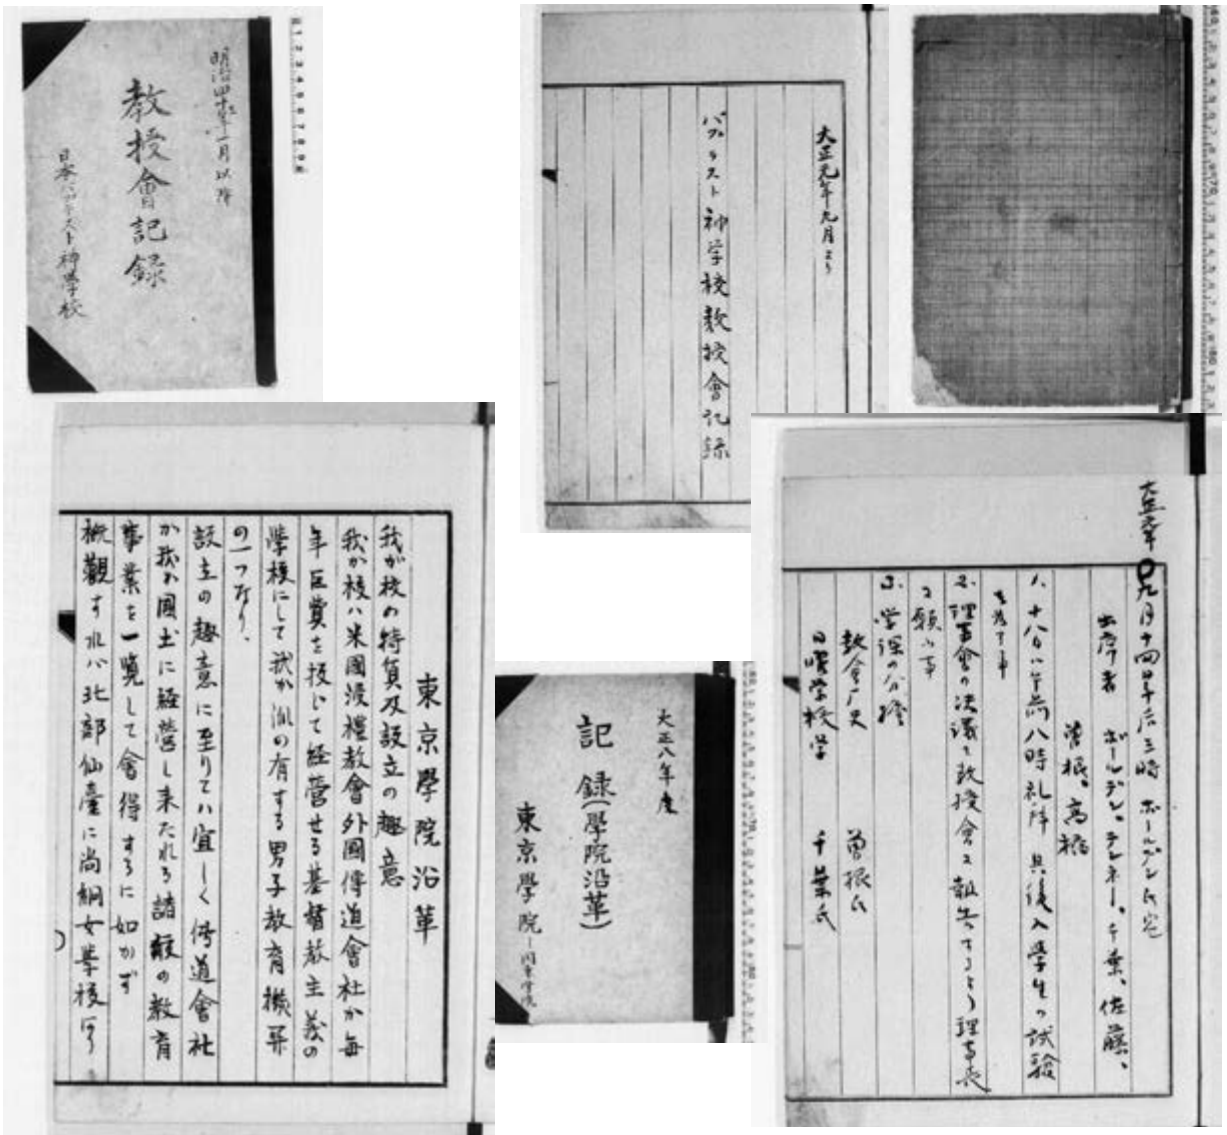 明治四十年一月以降
教授會記録
日本バプテスト神學校
大正元年九月より
バプテスト神学校教授會記録
東京學院沿革
我が校の特質及設立の趣意
我が校ハ米國浸禮教會外國傳道會社が毎
年巨資を投じて経営せる基督教主義の
學校にして我が派の有する男子教育機関
の一つなり、
設立の趣意に至りてハ宜しく傳道會社
が我が國土に経營し来たれる諸般の教育
事業を一覧して會得するに如かず
概觀すれバ北部仙臺に尚絅女學校
大正八年度
記録(學院沿革)
東京學院
九月十四日午后三時 ホールデン氏宅
出席者 ホールデン、テンネー、千葉、佐藤、
曽根、高橋
1、十八日午前八時礼拝 其後入學生の試験
を為す事
2、理事會の決議を教授會に報告する
を願ふ事
3、学課の分擔
教會歴史 曽根氏
日曜学校学 千葉氏